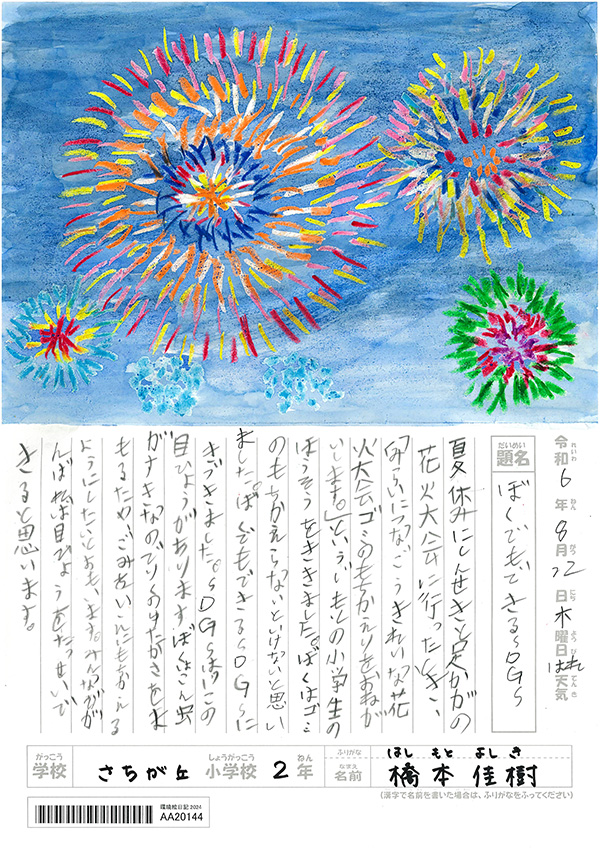 れいわ ねん がつ にち よう び てん き
令和6年8月22日木曜日 はれ 天気
だいめい
題名 ぼくでもできるSDGs
夏休みにしんせきと足かがの
花火大会に行ったとき、
「みらいにつなごうきれいな花
火大会ゴミのもちかえりをおねが
いします。」という、じもとの小学生の
ほうそうをききました。ぼくはゴミ
のもちかえらないといけないと思い
ました。ぼくでもできるSDGsに
きづきました。SDGsは17この
目ひょうがあります。ぼくはこん虫
がすきなのでりくのゆたかさをま
もるため、ごみをいえにもちかえる
ようにしたいとおもいます。みんなが が
んばれば目ひょうをたっせいで
きると思います。
がっこう しょうがっこう ねん
学校 さちが丘 小学校 2年
ふりがな はし もと よし き
なまえ
名前 橋本佳樹
(漢字で名前を書いた場合は、ふりがなをふってください)
環境絵日記2024
AA20144